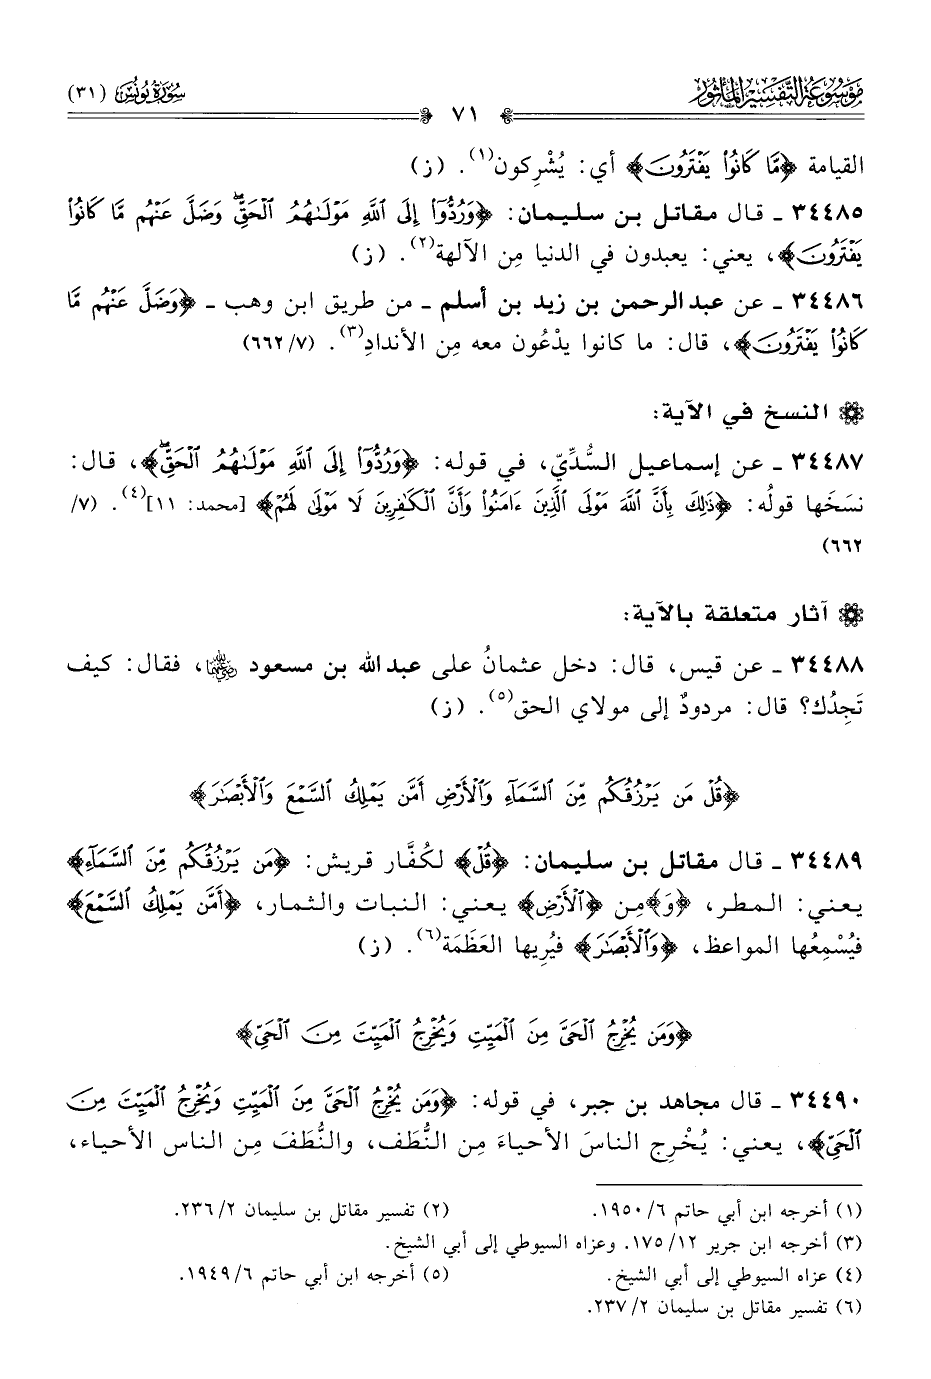 مَوْسُوعَة التَّفْسِيْر المَأْثُور
سُورَةُ يُونُسَ (٣١)
٧١
القيامة ﴿مَّا كَانُوا۟ يَفْتَرُونَ﴾ أي: يُشْرِكون(١). (ز)
٣٤٤٨٥ ـ قال مقاتل بن سليمان: ﴿وَرُدُّوٓا۟ إِلَى ٱللَّهِ مَوْلَىٰهُمُ ٱلْحَقِّۖ وَضَلَّ عَنْهُم مَّا كَانُوا۟
يَفْتَرُونَ﴾، يعني: يعبدون في الدنيا مِن الآلهة(٢). (ز)
٣٤٤٨٦ ـ عن عبد الرحمن بن زيد بن أسلم ـ من طريق ابن وهب ـ ﴿وَضَلَّ عَنْهُم مَّا
كَانُوا۟ يَفْتَرُونَ﴾، قال: ما كانوا يدْعُون معه مِن الأندادِ(٣). (٧/ ٦٦٢)
النسخ في الآية:
٣٤٤٨٧ ـ عن إسماعيل السُّدِّيّ، في قوله: ﴿وَرُدُّوٓا۟ إِلَى ٱللَّهِ مَوْلَىٰهُمُ ٱلْحَقِّۖ﴾، قال:
نسَخَها قولُه: ﴿ذَٰلِكَ بِأَنَّ ٱللَّهَ مَوْلَى ٱلَّذِينَ ءَامَنُوا۟ وَأَنَّ ٱلْكَٰفِرِينَ لَا مَوْلَىٰ لَهُمْ﴾ [محمد: ١١](٤). (٧/
٦٦٢)
آثار متعلقة بالآية:
٣٤٤٨٨ ـ عن قيس، قال: دخل عثمانُ على عبد الله بن مسعود رضي الله عنه، فقال: كيف
تَجِدُك؟ قال: مردودٌ إلى مولاي الحق(٥). (ز)
﴿قُلْ مَن يَرْزُقُكُم مِّنَ ٱلسَّمَآءِ وَٱلْأَرْضِ أَمَّن يَمْلِكُ ٱلسَّمْعَ وَٱلْأَبْصَٰرَ﴾
٣٤٤٨٩ ـ قال مقاتل بن سليمان: ﴿قُلْ﴾ لكُفَّار قريش: ﴿مَن يَرْزُقُكُم مِّنَ ٱلسَّمَآءِ﴾
يعني: المطر، ﴿وَ﴾مِن ﴿ٱلْأَرْضِ﴾ يعني: النبات والثمار، ﴿أَمَّن يَمْلِكُ ٱلسَّمْعَ﴾
فيُسْمِعُها المواعظ، ﴿وَٱلْأَبْصَٰرَ﴾ فيُرِيها العَظَمَة(٦). (ز)
﴿وَمَن يُخْرِجُ ٱلْحَىَّ مِنَ ٱلْمَيِّتِ وَيُخْرِجُ ٱلْمَيِّتَ مِنَ ٱلْحَىِّ﴾
٣٤٤٩٠ ـ قال مجاهد بن جبر، في قوله: ﴿وَمَن يُخْرِجُ ٱلْحَىَّ مِنَ ٱلْمَيِّتِ وَيُخْرِجُ ٱلْمَيِّتَ مِنَ
ٱلْحَىِّ﴾، يعني: يُخْرِج الناسَ الأحياءَ مِن النُّطَف، والنُّطَفَ مِن الناس الأحياء،
(١) أخرجه ابن أبي حاتم ٦/ ١٩٥٠. (٢) تفسير مقاتل بن سليمان ٢/ ٢٣٦.
(٣) أخرجه ابن جرير ١٢/ ١٧٥. وعزاه السيوطي إلى أبي الشيخ.
(٤) عزاه السيوطي إلى أبي الشيخ. (٥) أخرجه ابن أبي حاتم ٦/ ١٩٤٩.
(٦) تفسير مقاتل بن سليمان ٢/ ٢٣٧.